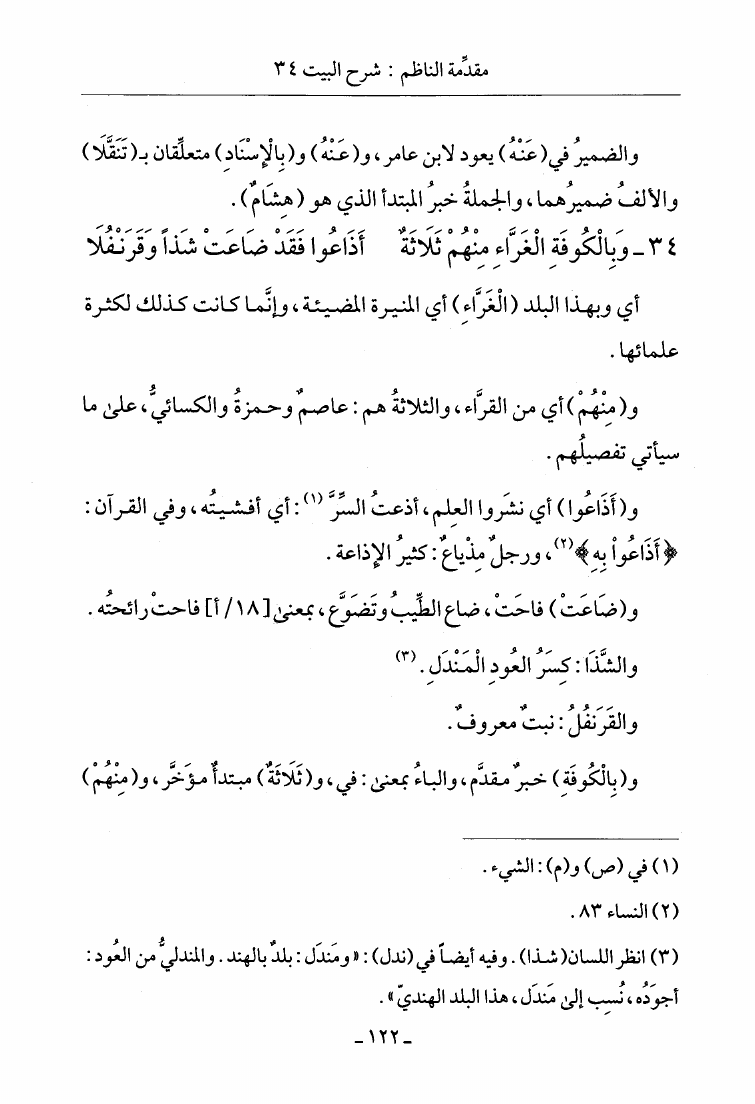 مقدِّمة الناظم : شرح البيت ٣٤
والضميرُ في (عَنْهُ) يعود لابن عامر، و(عَنْهُ) و(بِالْإِسْنَادِ) متعلِّقان بـ(تَنَقَّلَا)
والألفُ ضميرُهما، والجملةُ خبرُ المبتدأ الذي هو (هِشَامٌ).
٣٤ ـ وَبِالْكُوفَةِ الْغَرَّاءِ مِنْهُمْ ثَلَاثَةٌ أَذَاعُوا فَقَدْ ضَاعَتْ شَذاً وَقَرَنْفُلَا
أي وبهذا البلد (الْغَرَّاءِ) أي المنيرة المضيئة، وإنَّما كانت كذلك لكثرة
علمائها.
و(مِنْهُمْ) أي من القرَّاء، والثلاثةُ هم: عاصمٌ وحمزةُ والكسائيُّ، علىٰ ما
سيأتي تفصيلُهم.
و(أَذَاعُوا) أي نشَروا العِلم، أذعتُ السِّرَّ (١): أي أفشيتُه، وفي القرآن:
﴿أَذَاعُواْ بِهِ﴾(٢)، ورجلٌ مِذْياعٌ: كثيرُ الإذاعة.
و(ضَاعَتْ) فاحَتْ، ضاع الطِّيبُ وتَضَوَّع، بمعنىٰ [١٨/ أ] فاحتْ رائحتُه.
والشَّذَا: كِسَرُ العُودِ الْمَنْدَلِ.(٣)
والقَرَنفُلُ: نبتٌ معروفٌ.
و(بِالْكُوفَةِ) خبرٌ مقدَّم، والباءُ بمعنىٰ: في، و(ثَلَاثَةٌ) مبتدأٌ مؤخَّر، و(مِنْهُمْ)
(١) في (ص) و(م): الشيء.
(٢) النساء ٨٣.
(٣) انظر اللسان (شذا). وفيه أيضاً في (ندل): «ومَندَل: بلدٌ بالهند. والمندليُّ من العُود:
أجوَدُه، نُسِب إلىٰ مَندَل، هذا البلد الهنديّ».
ـ ١٢٢ ـ